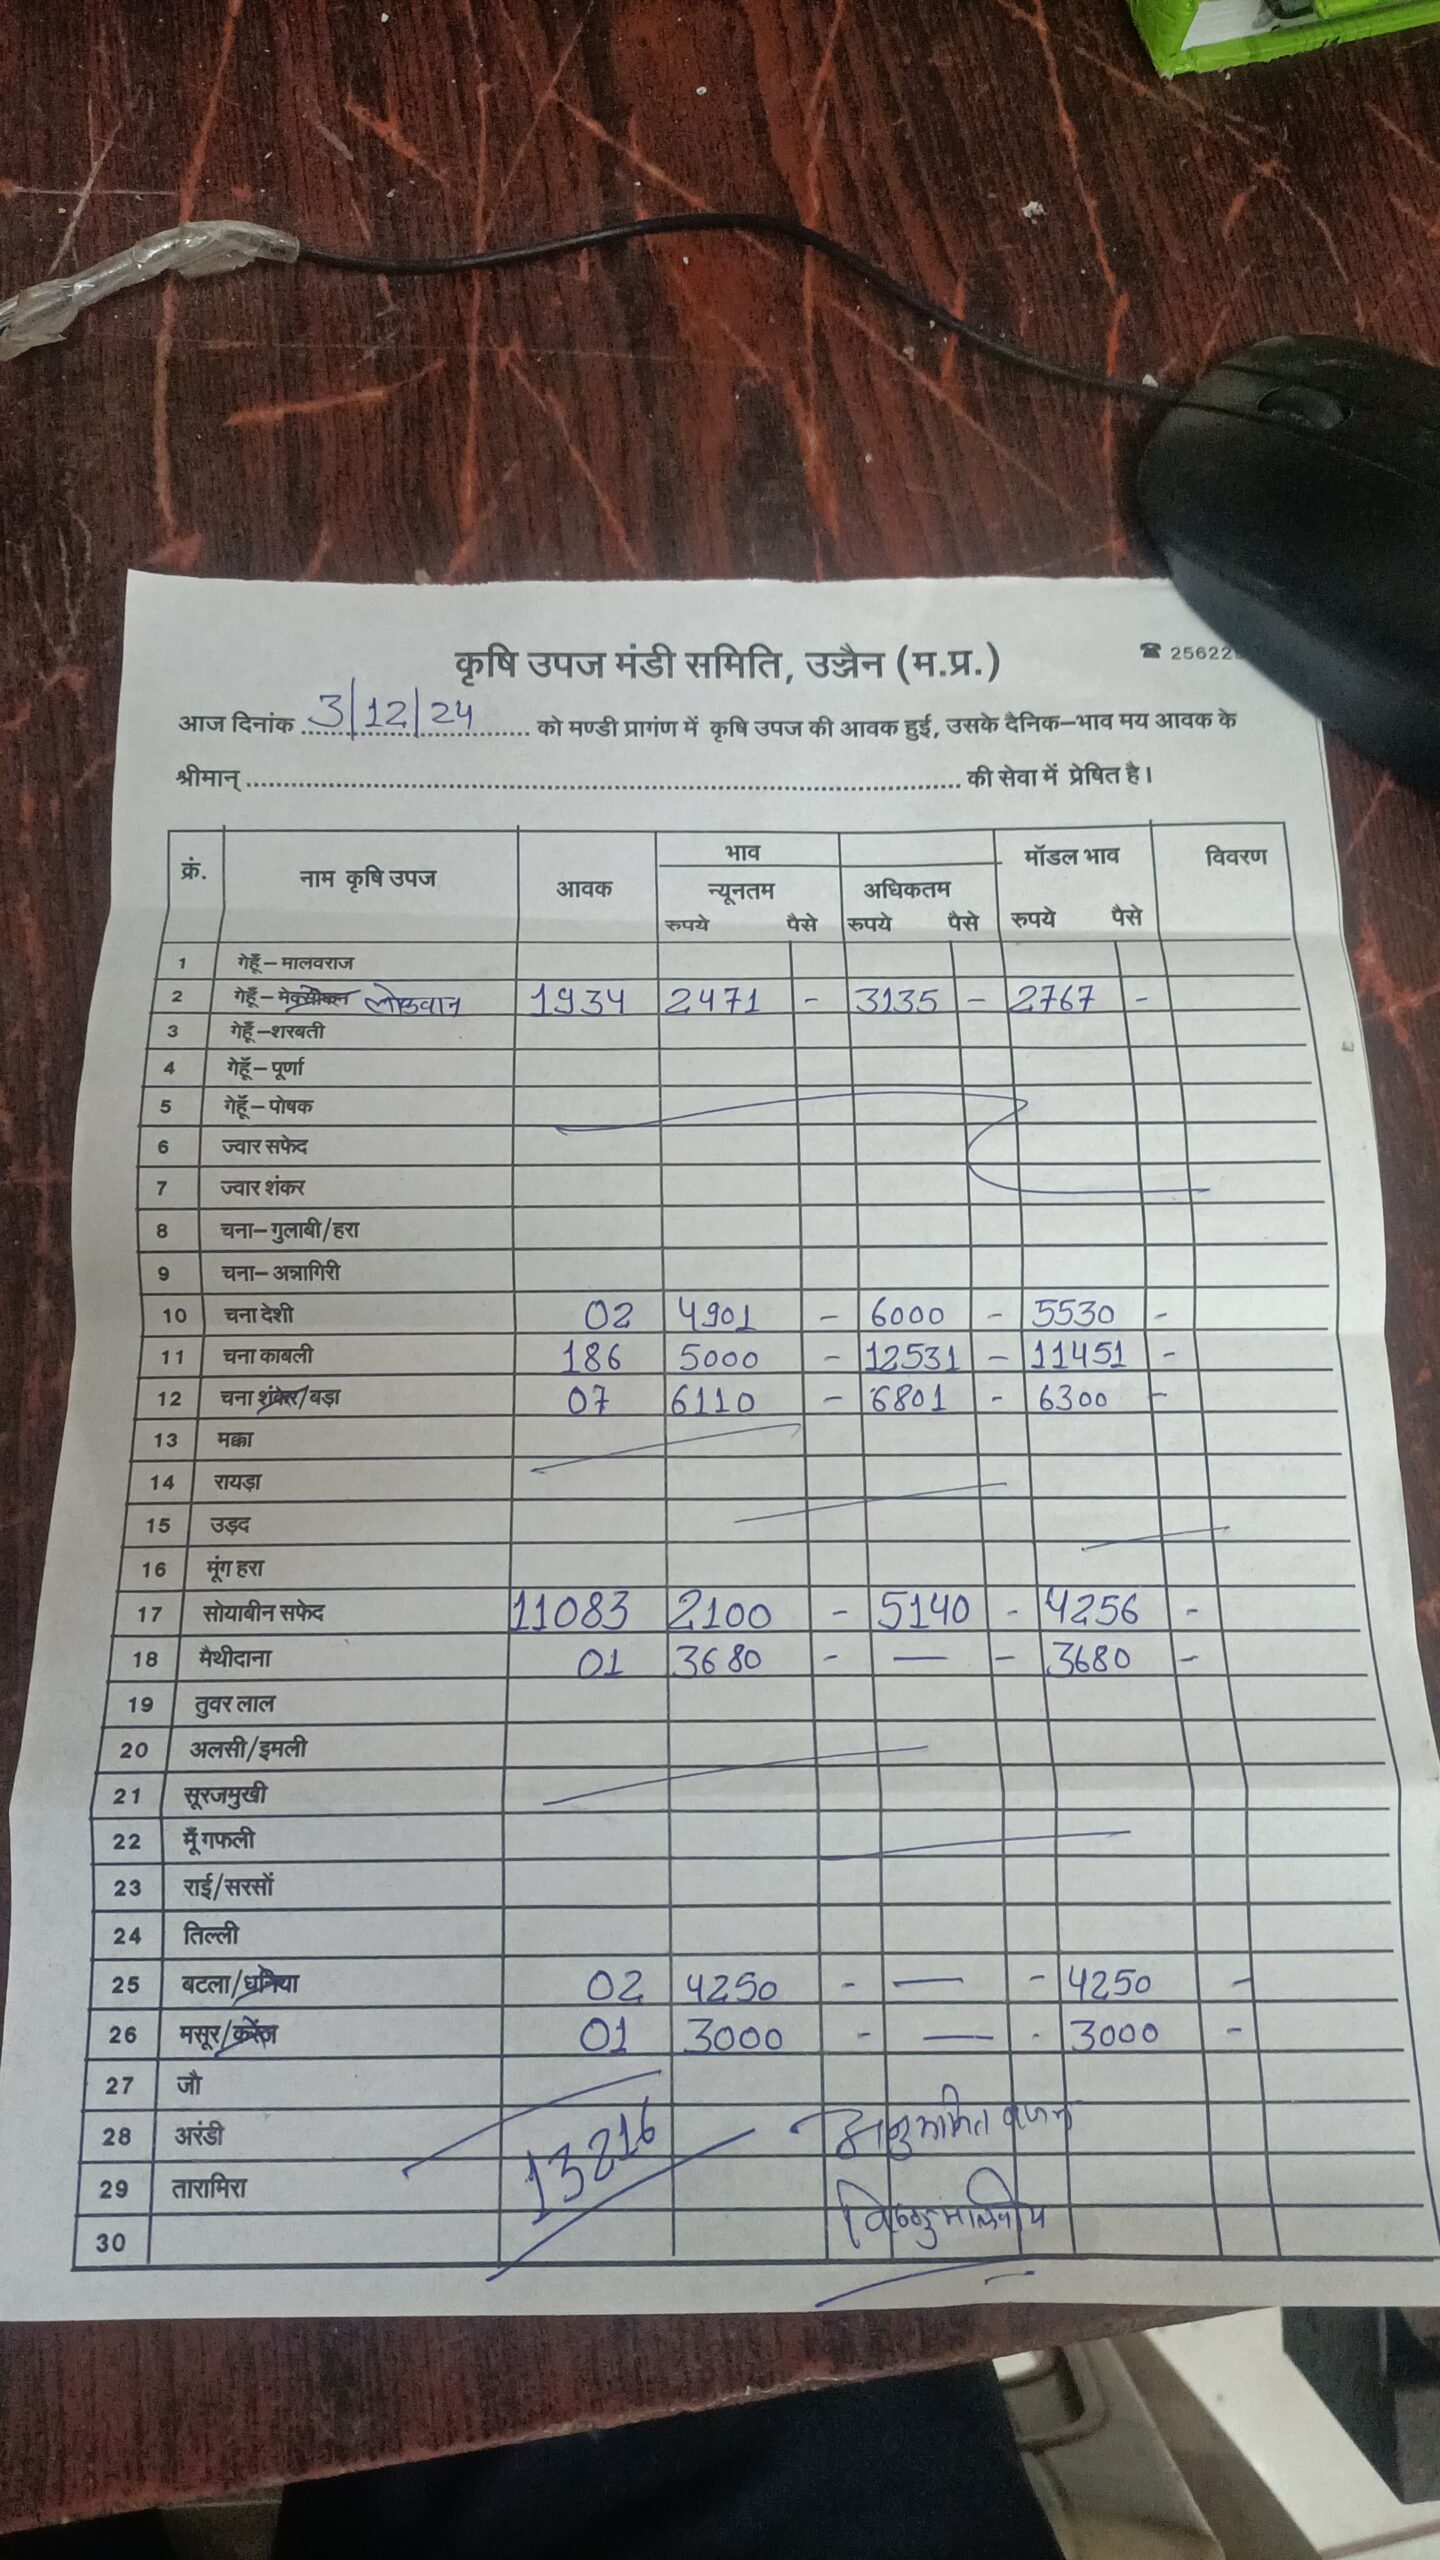 कृषि उपज मंडी समिति, उज्जैन (म.प्र.) ☎ 25622
आज दिनांक 3/12/24 को मण्डी प्रागंण में कृषि उपज की आवक हुई, उसके दैनिक–भाव मय आवक के
श्रीमान् ........ की सेवा में प्रेषित है।
क्रं. नाम कृषि उपज आवक भाव मॉडल भाव विवरण
न्यूनतम अधिकतम
रुपये पैसे रुपये पैसे रुपये पैसे
1 गेहूँ–मालवराज
2 गेहूँ–मेक्सीकन लोकवान 1934 2471 - 3135 - 2767 -
3 गेहूँ–शरबती
4 गेहूँ–पूर्णा
5 गेहूँ–पोषक
6 ज्वार सफेद
7 ज्वार शंकर
8 चना–गुलाबी/हरा
9 चना–अन्नागिरी
10 चना देशी 02 4901 - 6000 - 5530 -
11 चना काबली 186 5000 - 12531 - 11451 -
12 चना शंकर/बड़ा 07 6110 - 6801 - 6300 -
13 मक्का
14 रायड़ा
15 उड़द
16 मूंग हरा
17 सोयाबीन सफेद 11083 2100 - 5140 - 4256 -
18 मैथीदाना 01 3680 - — - 3680 -
19 तुवर लाल
20 अलसी/इमली
21 सूरजमुखी
22 मूँगफली
23 राई/सरसों
24 तिल्ली
25 बटला/धनिया 02 4250 - — - 4250 -
26 मसूर/करंज 01 3000 - — - 3000 -
27 जौ
28 अरंडी 13216
29 तारामिरा
30